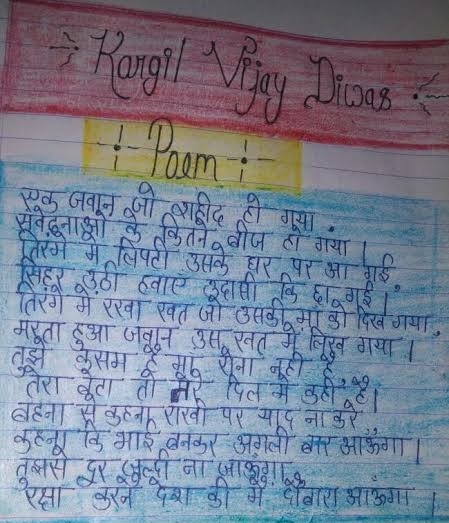 Kargil Vijay Diwas
Poem
एक जवान जो शहीद हो गया
संवेदनाओ के कितने बीज बो गया ।
तिरंगे में लिपटी उसके घर पर आ गई
सिहर उठी हवाएं उदासी कि छा गई ।
तिरंगे में रखा खत जो उसकी माँ को दिख गया
मरता हुआ जवान उस खत में लिख गया ।
तुझे कसम है माँ रोना नही है
तेरा बेटा तो तेरे दिल में कहीं है।
बहना से कहना राखी पर याद ना करे
कहना कि भाई बनकर अगली बार आऊंगा ।
तुझसे दूर जल्दी ना जाऊंगा
रक्षा करने देश की मैं दोबारा आऊंगा ।